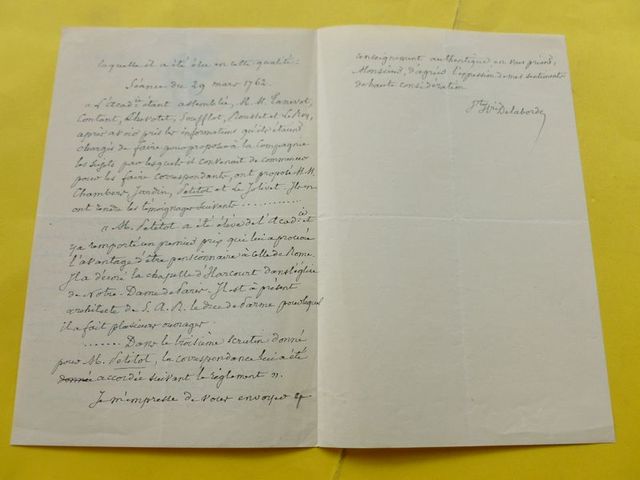 laquelle il a été élu en cette qualité:
Séance du 29 mars 1762.
« L'Acad.ie étant assemblée, M.M.
Contant, Soufflot, Rousset et LeRoy,
après avoir pris les informations qu'ils étaient
chargés de faire pour proposer à la Compagnie
les sujets par lesquels il convenait de commencer
pour les faire correspondants, ont proposé M.M.
Chambers, Jardin, Petitot et Le Jolivet. Ils en
ont rendu les témoignages suivants ............
« M. Petitot a été élève de l'Acad.ie et
y a remporté un premier prix qui lui a procuré
l'avantage d'être pensionnaire à celle de Rome.
Il a décoré la chapelle d'Harcourt dans l'église
de Notre-Dame de Paris. Il est à présent
architecte de S. A. R. le duc de Parme, pour lequel
il a fait plusieurs ouvrages.
...... Dans le troisième scrutin donné
pour M. Petitot, la correspondance lui a été
donnée accordée suivant le règlement ».
Je m'empresse de vous envoyer
renseignement authentique en vous priant,
Monsieur, d'agréer l'expression de mes sentiments
de haute considération
Delaborde